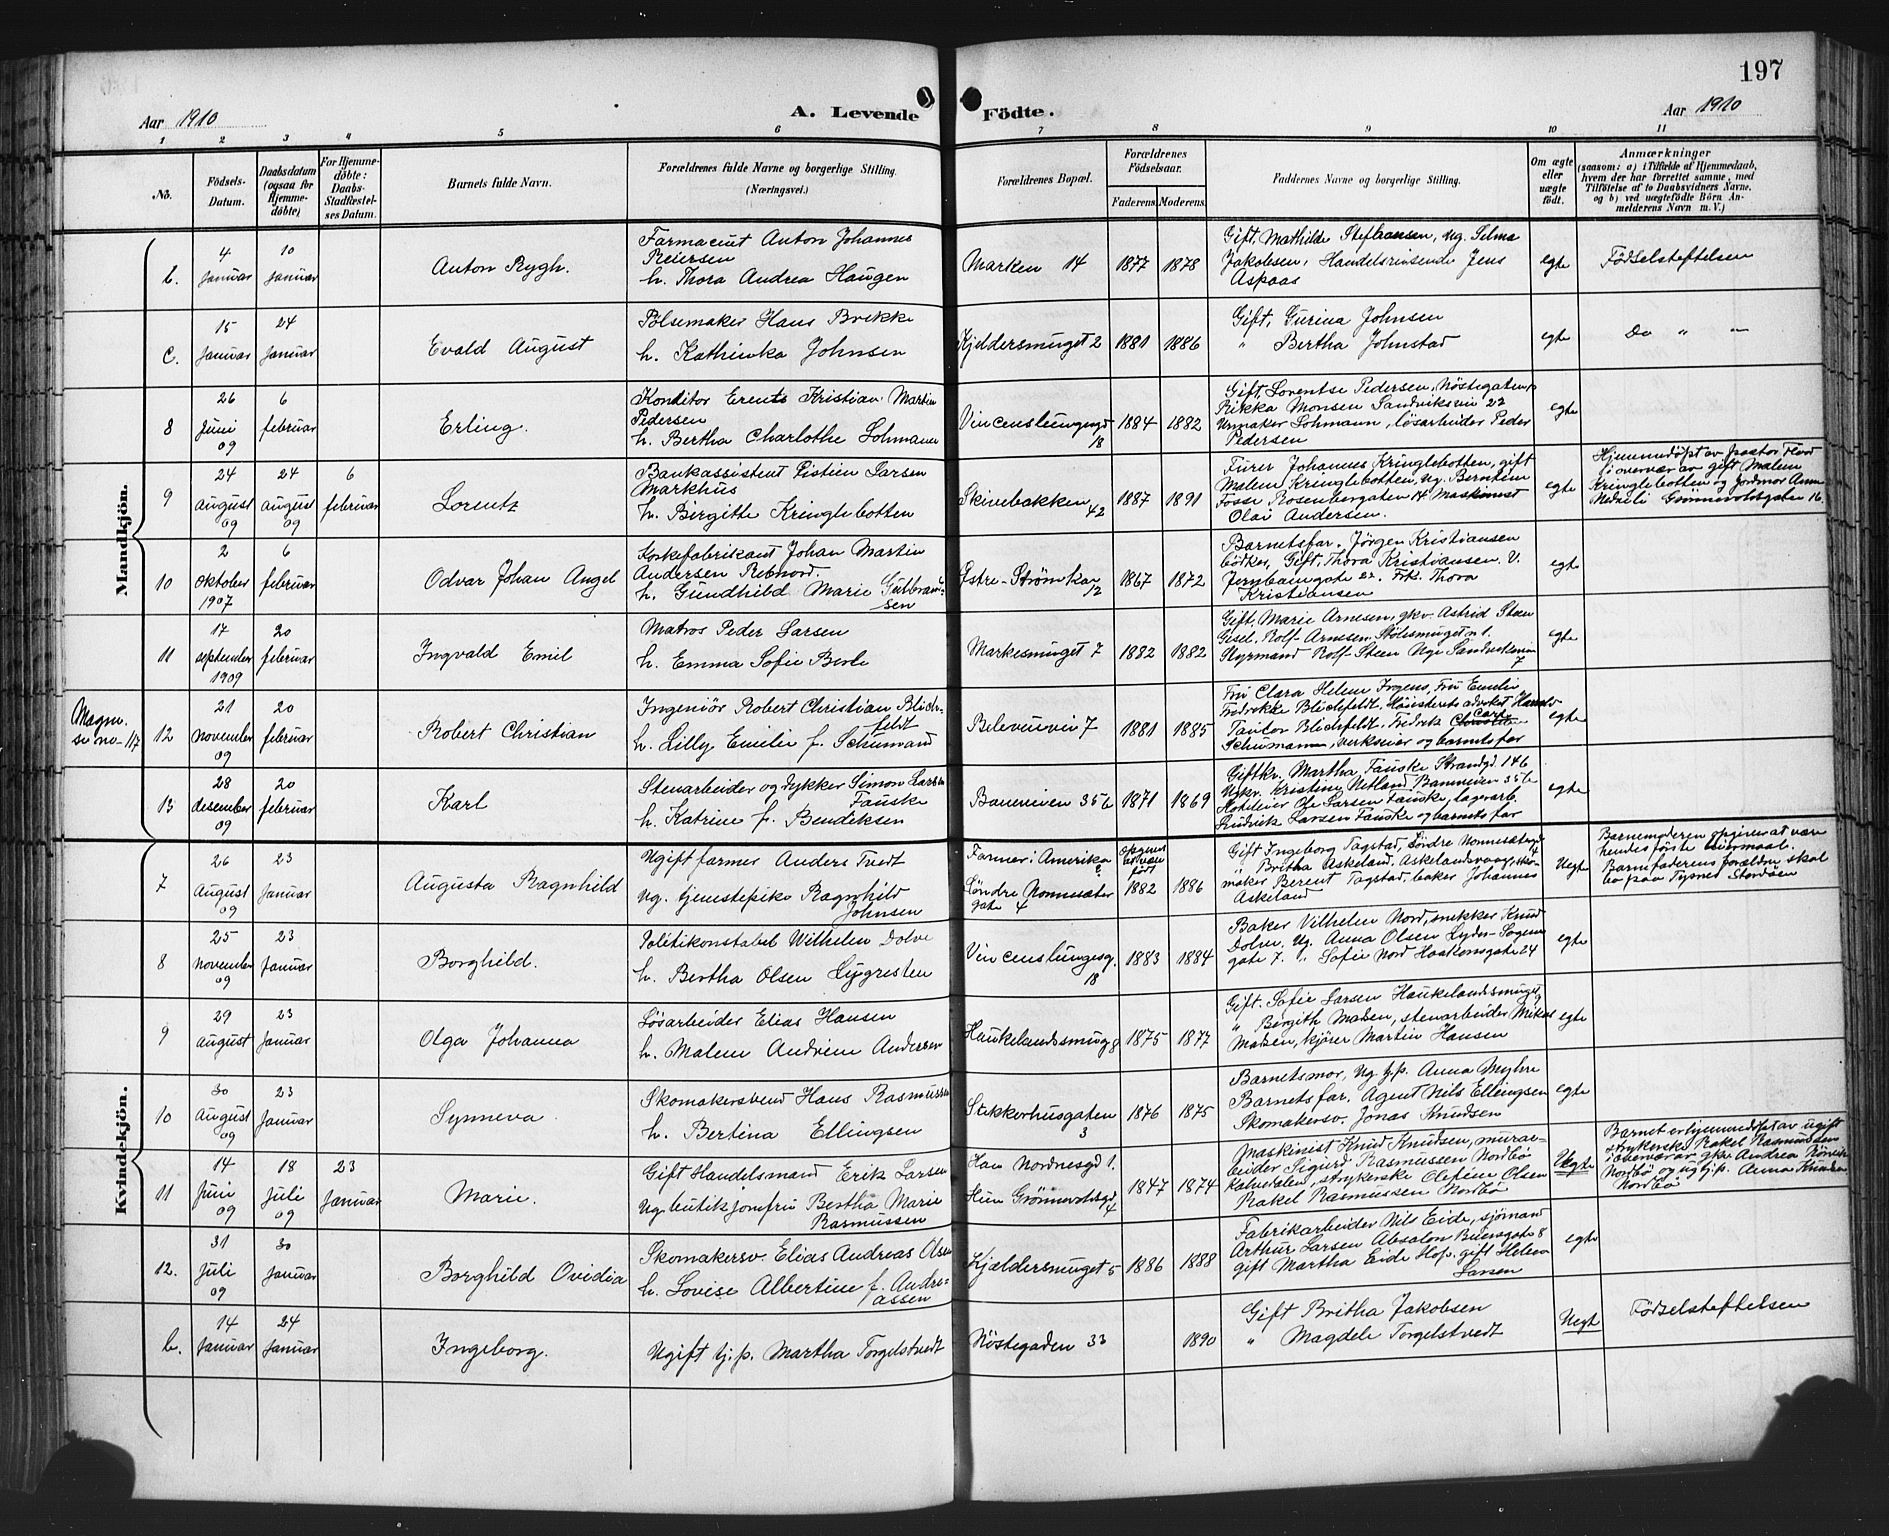 197
Aar 1910
A. Levende Födte.
Aar 1910
1 2 3 4 5 6 7 8 9 10 11
No.
Födsels-Datum.
Daabsdatum (ogsaa for Hjemme-döbte)
For Hjemme-döbte: Daabs-Stadfæstel-ses Datum.
Barnets fulde Navn.
Forældrenes fulde Navne og borgerlige Stilling.
(Næringsvei.)
Forældrenes Bopæl.
Forældrenes Födselsaar.
Faderens. Moderens.
Faddernes Navne og borgerlige Stilling.
Om ægte eller uægte födt.
Anmærkninger
(saasom: a) i Tilfælde af Hjemmedaab,
hvem der har forrettet samme, med
Tilföielse af to Daabsvidners Navne,
og b) ved uægtefödte Börn An-
melderens Navn m. V.)
Mandkjön.
b.
4 Januar
10 Januar
Anton Rygh.
Farmaceut Anton Johannes
Reiersen
h. Thora Andrea Haugen
Marken 14
1877
1878
Gift, Mathilde Steffensen, ug. Selma
Jakobsen, Handelsreisende Jens
Aspaas
egte
Födselsteftelsen
c.
15 Januar
24 Januar
Evald August
Pölsemaker Hans Brekke
h. Kathinka Johnsen
Kjeldersmuget 2
1881
1886
Gift, Gurina Johnsen
" Bertha Johnstad
egte
Do " "
8
26 Juni 09
6 februar
Erling.
Konditor Erents Kristian Martin
Pedersen
h. Bertha Charlothe Lohmann
Vincenslungesgd 18
1884
1882
Gift, Lorentse Pedersen, Nöstegaten
Rikka Monsen Sandviksvei 22
Urmaker Lohmann, lösarbeider Peder
Pedersen
egte
9
24 august 09
24 august 09
6 februar
Lorentz
Bankassistent Eistein Larsen
Markhus
h. Birgitte Kringlebotten
Skivebakken 42
1887
1891
Furer Johannes Kringlebotten, gift
Malene Kringlebotten, ug. Berntine
Fosse Rosenbergaten 14 Maskinist
Olai Andersen.
egte
Hjemmedöpt av pastor Flood
i overvær av gift Malene
Kringlebotten og Jordmor Anne
Grönnevoldsgaten 16.
10
2 oktober 1907
6 februar
Odvar Johan Angel
Korkefabrikant Johan Martin
Andersen Rebnord.
h. Gundhild Marie Gulbrand-
sen
Östre-Strömkai 12
1867
1872
Barnetsfar. Jörgen Kristiansen
bödker, Gift, Thora Kristiansen V.
Jernbanegate 22. Frk. Thora
Kristiansen
egte
11
17 september 1909
20 februar
Ingvald Emil
Matros Peder Larsen
h. Emma Sofie Berle
Markesmuget 7
1882
1882
Gift, Marie Arnesen, gkv. Astrid Steen
Gesel, Rolf Arnesen, Stölesmuget n 1.
Styrmand Rolf Steen Nye Sandviksvei
7
egte
Magn.
se no 117
12
21 november 09
20 februar
Robert Christian
Ingeniör Robert Christian Blich-
feldt
h. Lilly Emilie f. Schumann
Belevuevei 7
1881
1885
Fru Clara Helene Irgens, Fru Emilie
Fredrikke Blichfeldt, Höiesterets advokat Hans
Tautor Blichfeldt, Fredrik Carl
Schumann, verkseier og barnets far
egte
13
28 desember 09
20 februar
Karl
Stenarbeider og dykker Simon Larsen
Fauske
h. Katrine f. Bendiksen
Baneveien 35 b
1871
1869
Giftkv. Martha Fauske Strandgd 146
Ugkv. Kristine Netland, Baneveien 35 b
Hoteleier Ole Larsen Fauske, lagerarb.
Ludvik Larsen Fauske og barnets far
egte
Kvindekjön.
7
26 August 09
23 Januar
Augusta Ragnhild
Ugift farmer Anders Tvedt
Ug. tjenstepike Ragnhild
Johnsen
Farmer i Amerika
Söndre Nonnesæter
gate 4
opgivet
at være
födt
1882
1886
Gift Ingeborg Tagstad, Söndre Nonnesætergd 4
" Britha Askeland, Askelandsvaag, sko-
maker Berent Tagstad, baker Johannes
Askeland
Uegte
Barnemoderen opgiver at være
hendes förste leiermaal.
Barnefaderens forældre skal
bo paa Tysnes Stordöen
8
25 november 09
23 Januar
Borghild.
Politikonstabel Wilhelm Dolve
h. Bertha Olsen Lygresten
Vincenslungesg. 18
1883
1884
Baker Vilhelm Nord, snekker Knud
Dolve, Ug. Anna Olsen Lyder-Sagens
gate 7. " Sofie Nord Haakonsgate 24
egte
9
29 august
23 Januar
Olga Johanna
Lösarbeider Elias Hansen
h. Malene Andrine Andersen
Haukelandssmug 8
1875
1877
Gift. Sofie Larsen Haukelandssmuget 9
" Bergith Madsen, stenarbeider Mikas
Madsen, kjörer Martin Hansen
egte
10
30 August 09
23 Januar
Synneva
Skomakersvend Hans Rasmussen
h. Bertina Ellingsen
Stikkerhusgaten 3
1876
1875
Barnetsmor, ug. tj.p. Anna Myhre
Barnets far, Agent Nils Ellingsen
Skomakersv. Jonas Knudsen
egte
11
14 Juni 09
18 Juli 09
23 Januar
Marie.
Gift Handelsmand Erik Larsen
Ug. butikjomfru Bertha Marie
Rasmussen
Han Nordnesgd 1.
Hun Grönnevoldsgd 4
1847
1874
Maskinist Knud Knudsen, murar-
beider Sigurd Rasmussen Nordbö
Kalvedalen, strykerske Olefine Olsen
Rakel Rasmussen Nordbö
Uegte
Barnet er hjemmedöpt av ugift
strykerske Rakel Rasmussen
i overvær av gkv. Andrea Rönvik
Nordbö og ug tj.p. Anna Knudsen
Nordbö
12.
31 Juli 09
30 Januar
Borghild Ovidia
Skomakersv. Elias Andreas Olsen
h. Lovise Albertine f. Andre-
assen
Kjældersmuget 5
1886
1888
Fabrikarbeider Nils Eide, sjömand
Arthur Larsen Absalon Beiersgate 8
gift Martha Eide Hop. gift Helene
Larsen
egte
b.
14 Januar
24 Januar
Ingeborg.
Ugift tj.p. Martha Torgelstvedt
Nöstegaden 33
1890
Gift Britha Jakobsen
" Magdele Torgelstvedt
Uegt
Födselsteftelsen